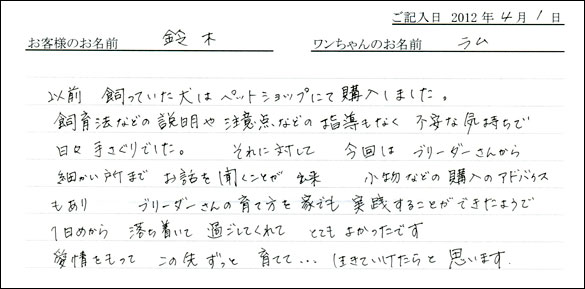 ご記入日 2012 年 4 月 1 日
お客様のお名前 鈴木 ワンちゃんのお名前 ラム
以前 飼っていた犬は ペットショップにて購入しました。
飼育法などの説明や注意点などの指導もなく 不安な気持ちで
日々 手さぐりでした。 それに対して 今回は ブリーダーさんから
細かい所まで お話を聞くことが出来 小物などの購入のアドバイス
もあり ブリーダーさんの育て方を家でも実践することができたようで
1日めから 落ち着いて過ごしてくれて とてもよかったです
愛情をもって この先ずっと 育てて… 生きていけたらと思います.